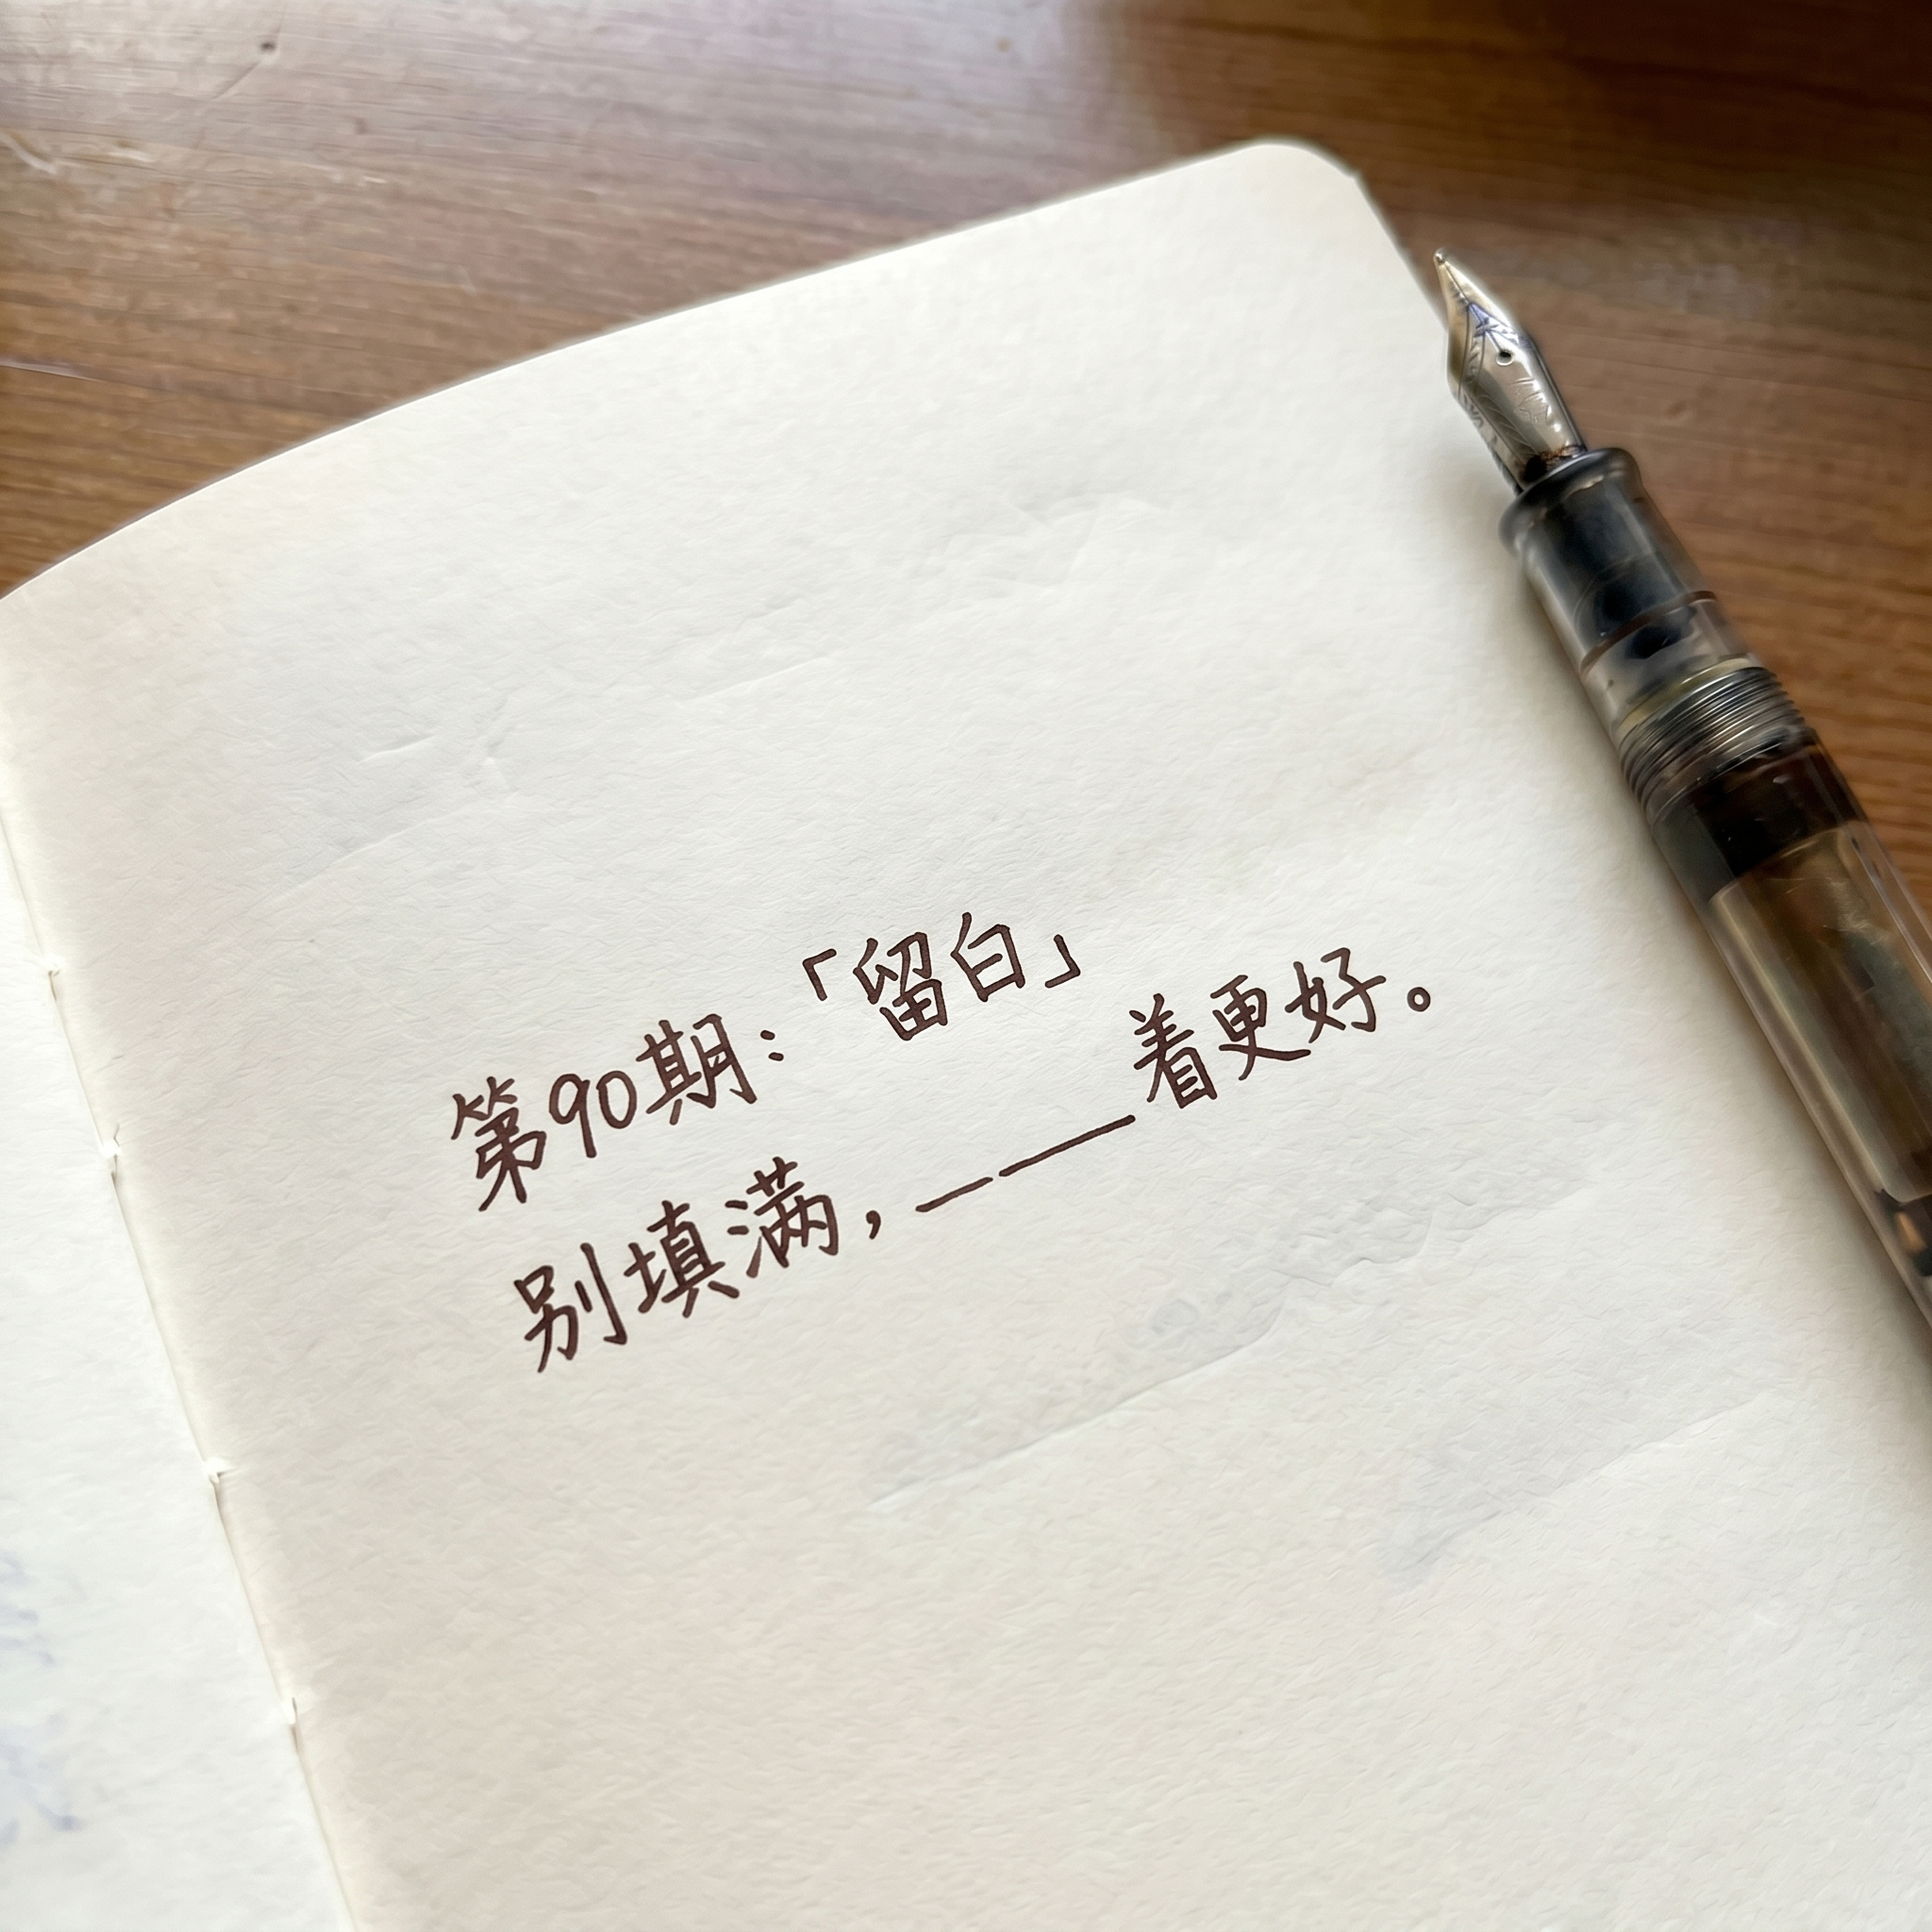 第90期：「留白」
别填满，_____着更好。